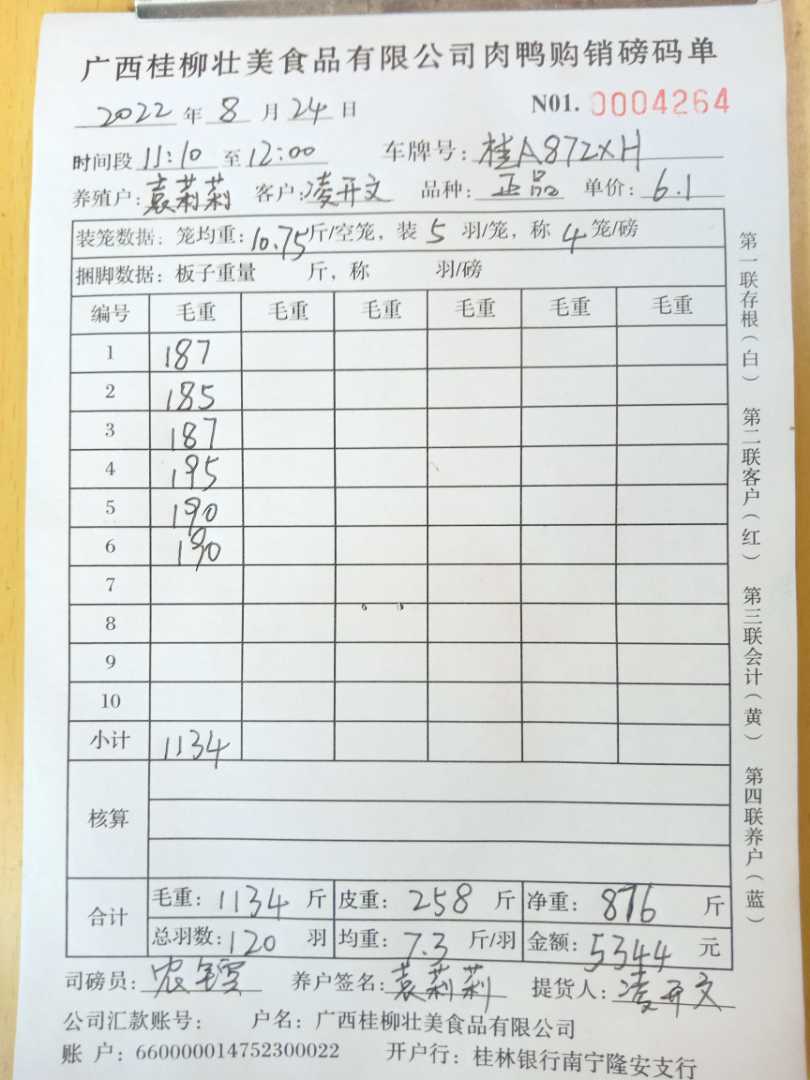 广西桂柳壮美食品有限公司肉鸭购销磅码单
2022年8月24日 N01. 0004264
时间段11:10至12:00 车牌号:桂A872XH
养殖户:袁莉莉 客户:凌开文 品种:正品 单价:6.1
装笼数据:笼均重:10.75斤/空笼,装5羽/笼,称4笼/磅
捆脚数据:板子重量 斤,称 羽/磅
编号 毛重 毛重 毛重 毛重 毛重 毛重
1 187
2 185
3 187
4 195
5 190
6 190
7
8
9
10
小计 1134
核算
合计 毛重:1134斤 皮重:258斤 净重:876斤
总羽数:120羽 均重:7.3斤/羽 金额:5344元
司磅员: 养户签名:袁莉莉 提货人:凌开文
公司汇款账号: 户名:广西桂柳壮美食品有限公司
账户:660000014752300022 开户行:桂林银行南宁隆安支行
第一联存根(白) 第二联客户(红) 第三联会计(黄) 第四联养户(蓝)